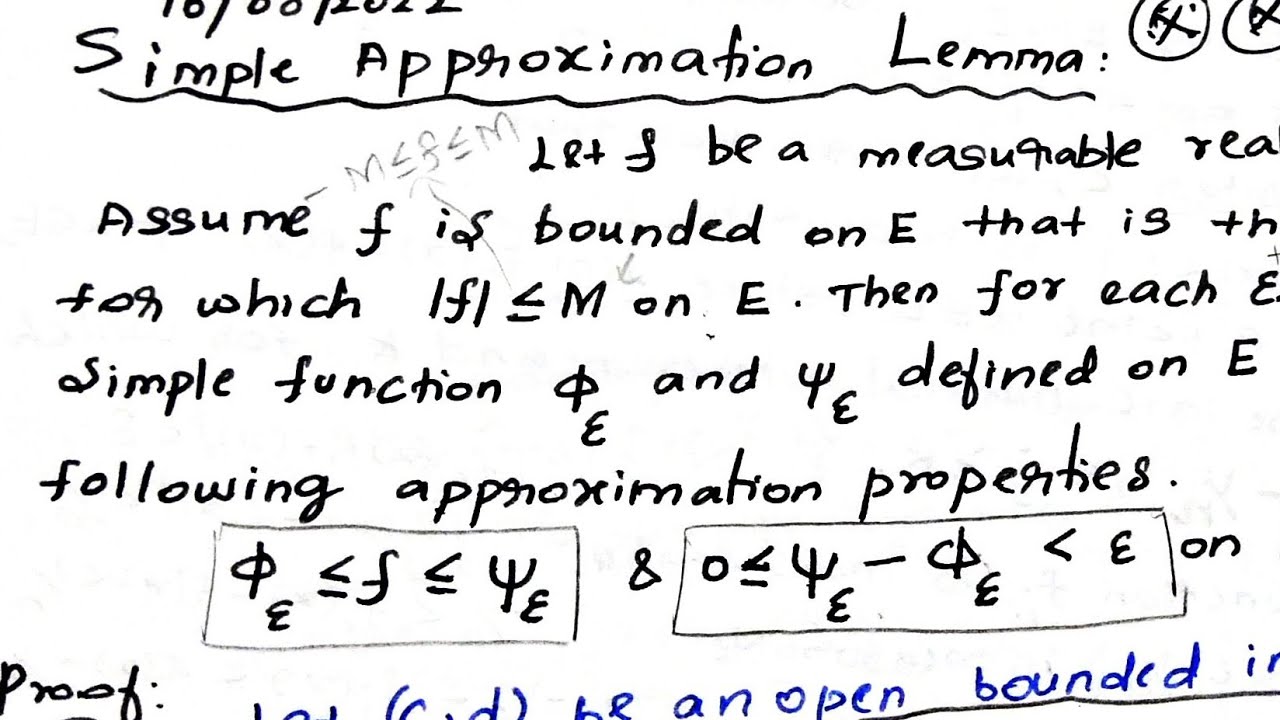 16/08/2022
Simple Approximation Lemma:
-M≤f≤M
Let f be a measurable real
Assume f is bounded on E that is th
for which |f| ≤ M on E. Then for each ε
Simple function Φ_ε and Ψ_ε defined on E
following approximation properties.
Φ_ε ≤ f ≤ Ψ_ε & 0 ≤ Ψ_ε - Φ_ε < ε on
Proof:
Let (c,d) be an open bounded in